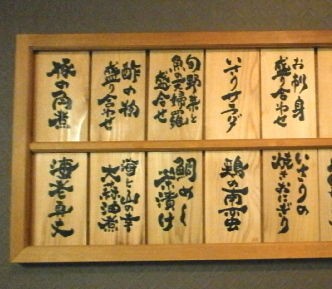 お刺身
盛り合わせ
いさりサラダ
旬野菜と
魚の天婦羅
盛合せ
酢の物
盛り合わせ
豚の角煮
いさりの
焼きおにぎり
鶏の南蛮
鯛めし
茶漬け
海と山の幸
海老真丈